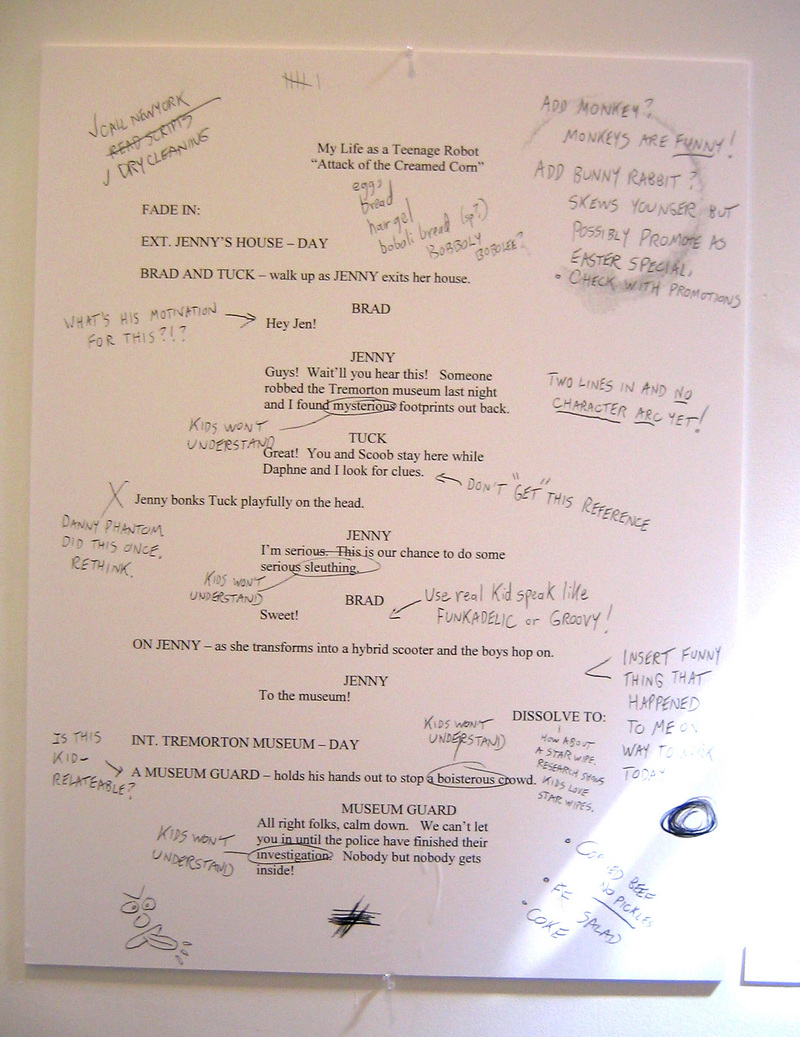 √CALL NEWYORK
READ SCRIPTS
√ DRY CLEANING
My Life as a Teenage Robot
“Attack of the Creamed Corn”
eggs
bread
hair gel
boboli bread (sp?)
BOBBOLY
BOBOLEE?
ADD MONKEY?
MONKEYS ARE FUNNY!
ADD BUNNY RABBIT?
SKEWS YOUNGER BUT
POSSIBLY PROMOTE AS
EASTER SPECIAL,
• CHECK WITH PROMOTIONS
FADE IN:
EXT. JENNY’S HOUSE – DAY
BRAD AND TUCK – walk up as JENNY exits her house.
BRAD
Hey Jen!
WHAT'S HIS MOTIVATION
FOR THIS?!?
JENNY
Guys! Wait’ll you hear this! Someone
robbed the Tremorton museum last night
and I found mysterious footprints out back.
KIDS WON'T
UNDERSTAND
TWO LINES IN AND NO
CHARACTER ARC YET!
TUCK
Great! You and Scoob stay here while
Daphne and I look for clues.
DON'T "GET" THIS REFERENCE
X
Jenny bonks Tuck playfully on the head.
DANNY PHANTOM
DID THIS ONCE.
RETHINK.
JENNY
I’m serious. This is our chance to do some
serious sleuthing.
KIDS WON'T
UNDERSTAND
BRAD
Sweet!
Use real Kid speak like
FUNKADELIC or GROOVY!
ON JENNY – as she transforms into a hybrid scooter and the boys hop on.
INSERT FUNNY
THING THAT
HAPPENED
TO ME ON
WAY TO WORK
TODAY
JENNY
To the museum!
DISSOLVE TO:
HOW ABOUT
A STAR WIPE.
RESEARCH SHOWS
KIDS LOVE
STAR WIPES.
KIDS WON'T
UNDERSTAND
INT. TREMORTON MUSEUM – DAY
IS THIS
KID-
RELATEABLE?
A MUSEUM GUARD – holds his hands out to stop a boisterous crowd.
MUSEUM GUARD
All right folks, calm down. We can’t let
you in until the police have finished their
investigation? Nobody but nobody gets
inside!
KIDS WON'T
UNDERSTAND
• CORNED BEEF
NO PICKLES
• FF SALAD
• COKE